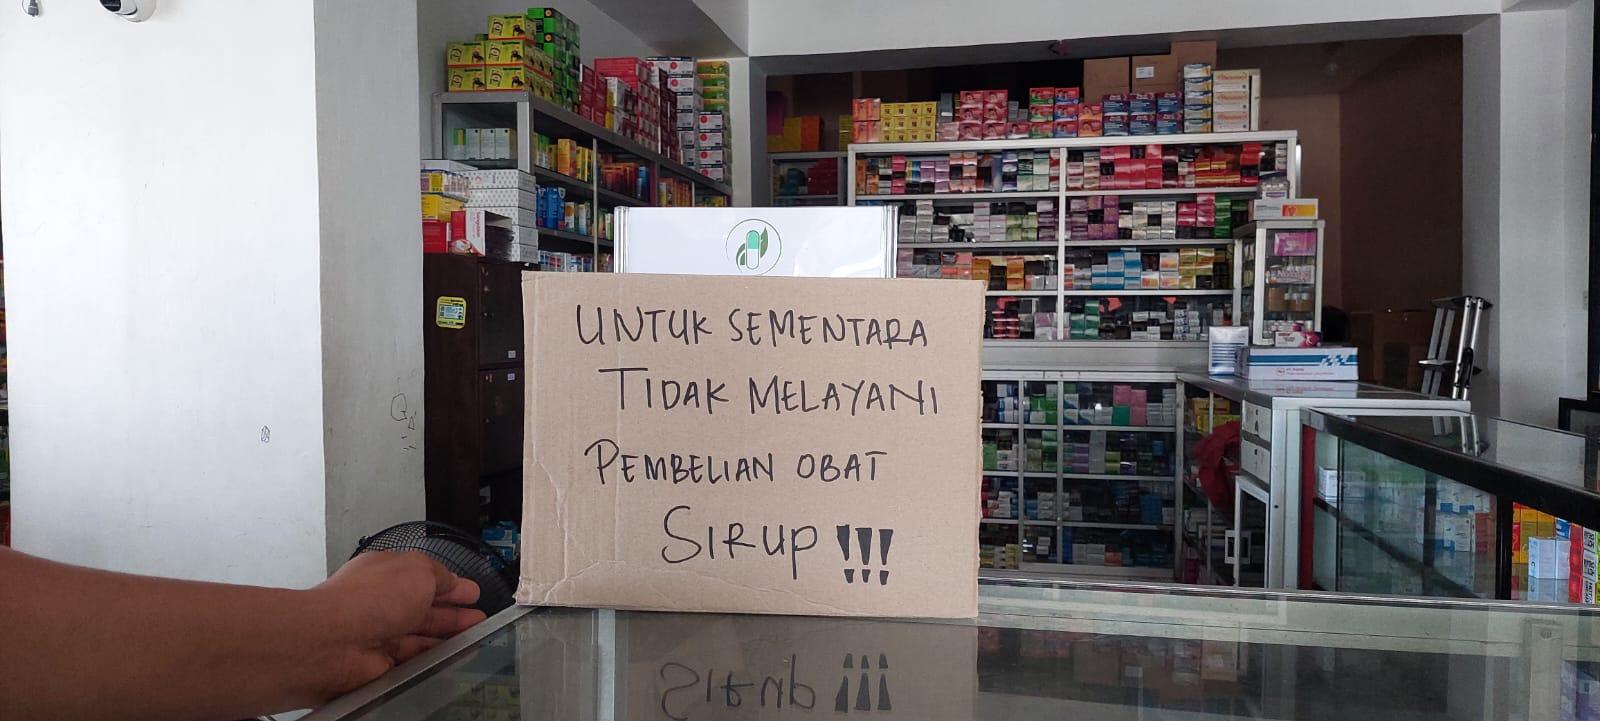 UNTUK SEMENTARA
TIDAK MELAYANI
PEMBELIAN OBAT
SIRUP !!!